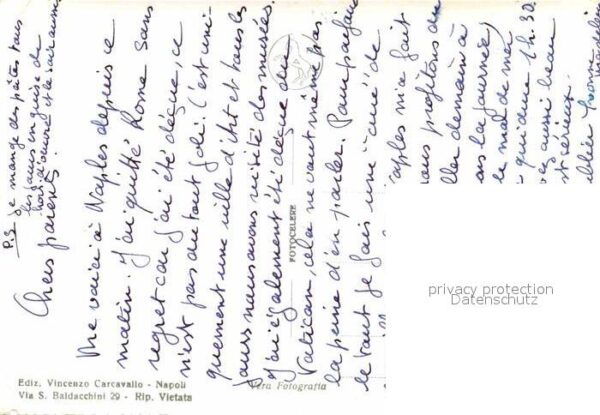 P.S Je mange des pâtes tous
les jours en guise de
hors d'œuvre et le soir aussi
Chers parents,
Me voici à Naples depuis ce
matin. J'ai quitté Rome sans
regret car j'ai été déçue, ce
n'est pas du tout joli. C'est uni-
quement une ville d'Art et tous les
jours nous avons visité des musées.
J'ai également été déçue du
Vatican, cela ne vaut même pas
la peine d'en parler. Pour parfaire
le tout je fais une
Naples m'a fait
ous profitons du
ller demain à
as la journée,
le mal de mer
qui dure 1h30.
aussi beau
st sérieux.
Yvonne
FOTOCELERE
Vera Fotografia
Ediz. Vincenzo Carcavallo - Napoli
Via S. Baldacchini 29 - Rip. Vietata
privacy protection
Datenschutz